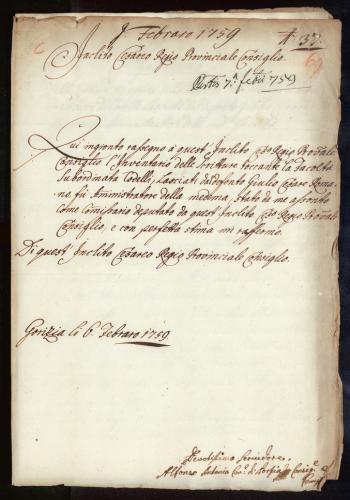 Febraro 1759
37.
Inclito Cesareo Regio Provinciale Consiglio.
69
7. 1759
Qui ingionto rassegno a quest' Inclito Ces.o Regio Prov.ale
Consiglio l'Inventario delle scritture toccante la facoltà
Subordinata Codelli, lasciati dal defonto Giulio Cesare Roma-
no fù Amministratore della medema, stato da me assonto
come Comissario deputato da quest' Inclito Ces.o Regio Prov.ale
Consiglio, e con perfetta stima mi rassegno.
Di quest' Inclito Cesareo Regio Provinciale Consiglio.
Gorizia li 6. Febraro 1759
Devotissimo Servidore.
Alfonso Antonio Co: de